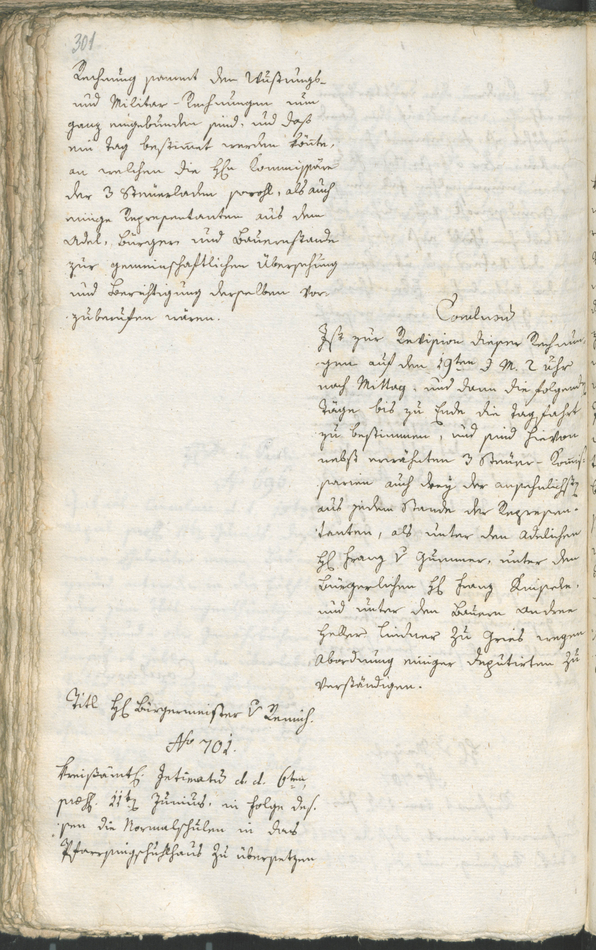 301.
Rechnung sammt den Wustungs-
und Militar-Rechnungen nun
ganz eingebunden sind, und daß
ein Tag bestimmt werden könte,
an welchen die Hln Commissäre
der 3 Steuerladen sowohl, als auch
einige Representanten aus dem
Adel, Bürger und Bauernstande
zur gemeinschaftlichen Übersehung
und Berichtigung derselben vor-
zuberufen wären.
Conclusum
Ist zur Revision dieser Rechnun-
gen auf den 19ten d. M. 2 Uhr
nach Mittag, und dann die folgende
Täge bis zu Ende die Tagfahrt
zu bestimmen, und sind hievon
nebst erwähnten 3 Steuer-Komis-
sarien auch drey der ansehnlichst
aus jedem Stande der Represen-
tanten, als unter den adelichen
Hl Franz v Gummer, unter den
Bürgerlichen Hl Franz Knipele,
und unter den Bauern Andree
Heller Lindner zu Gries wegen
Abordnung einiger Deputirten zu
verständigen.
Titl Hl Bürgermeister v Remich.
No 701.
Kreisämtl. Intimatum d. d. 6ten,
pres. 11ten Junius, in Folge des-
sen die Normalschulen in das
Pfarrsingschulhaus zu übersetzen